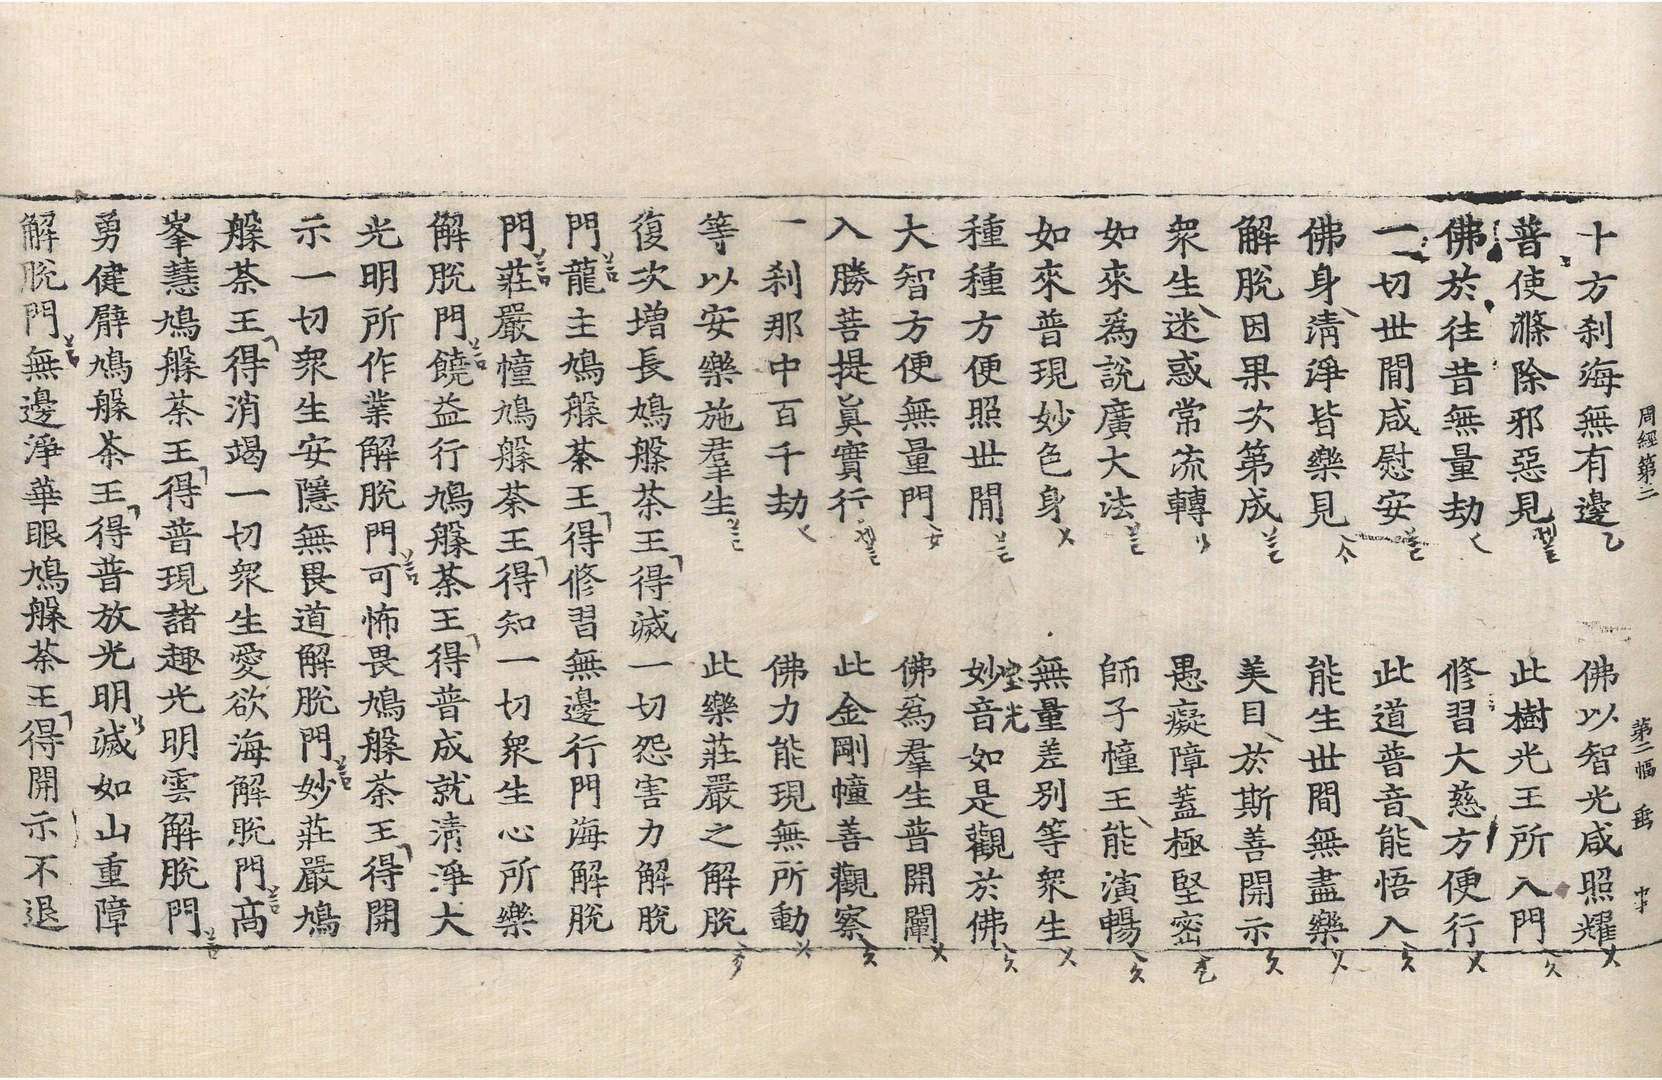 周經第三 第二幅
十方刹海無有邊 佛以智光咸照耀
普使滌除邪惡見 此樹光王所入門
佛於往昔無量劫 修習大慈方便行
一切世間咸慰安 此道普音能悟入
佛身清淨皆樂見 能生世間無盡樂
解脫因果次第成 美目於斯善開示
衆生迷惑常流轉 愚癡障蓋極堅密
如來爲說廣大法 師子幢王能演暢
如來普現妙色身 無量差別等衆生
種種方便照世間 妙音如是觀於佛
大智方便無量門 佛爲羣生普開闡
入勝菩提眞實行 此金剛幢善觀察
一刹那中百千劫 佛力能現無所動
等以安樂施羣生 此樂莊嚴之解脫
復次增長鳩槃荼王得滅一切怨害力解脫
門龍主鳩槃荼王得修習無邊行門海解脫
門莊嚴幢鳩槃荼王得知一切衆生心所樂
解脫門饒益行鳩槃荼王得普成就清淨大
光明所作業解脫門可怖畏鳩槃荼王得開
示一切衆生安隱無畏道解脫門妙莊嚴鳩
槃荼王得消竭一切衆生愛欲海解脫門高
峯慧鳩槃荼王得普現諸趣光明雲解脫門
勇健臂鳩槃荼王得普放光明滅如山重障
解脫門無邊淨華眼鳩槃荼王得開示不退